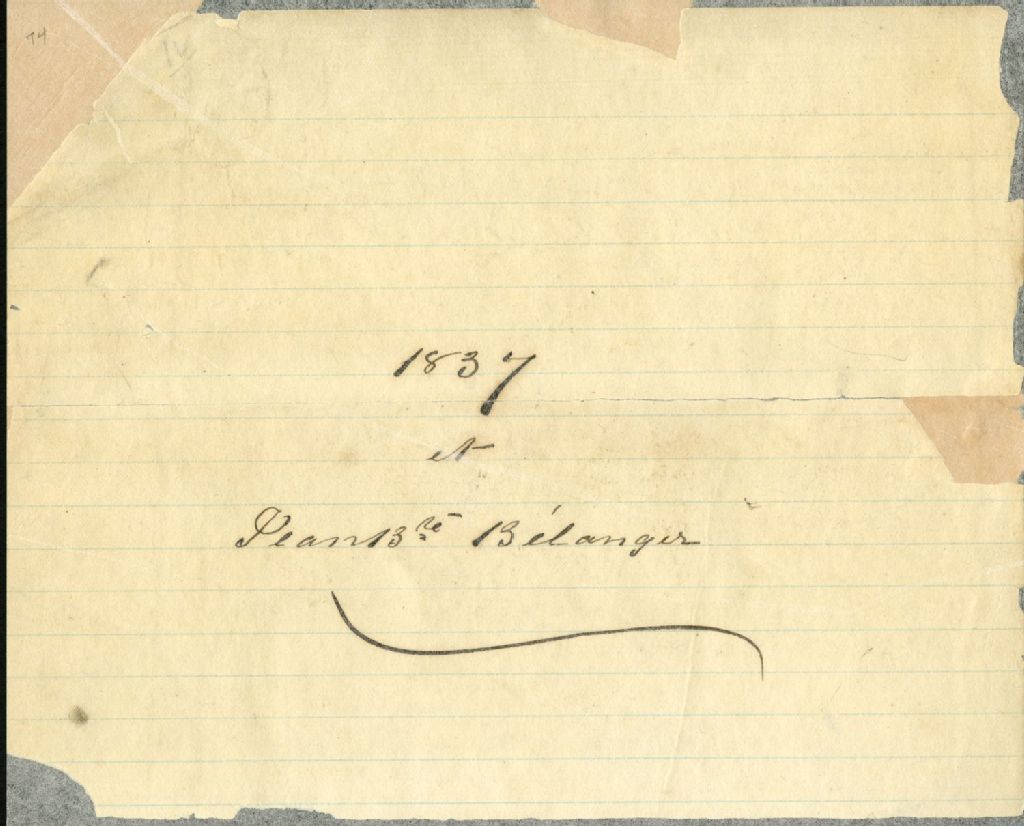 74
16
1837
et
Jean Bte Bélanger